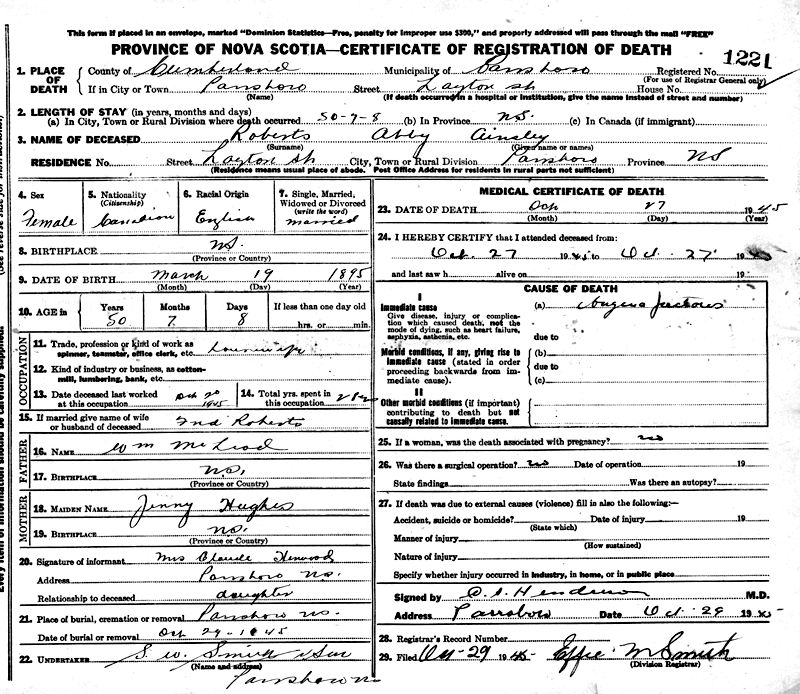 This form if placed in an envelope, marked "Dominion Statistics—Free, penalty for improper use $300," and properly addressed will pass through the mail "FREE"
PROVINCE OF NOVA SCOTIA—CERTIFICATE OF REGISTRATION OF DEATH
1221
1. PLACE OF DEATH
County of Cumberland Municipality of Parrsboro Registered No.
(For use of Registrar General only)
If in City or Town Parrsboro Street Layton St House No.
(Name) (If death occurred in a hospital or institution, give the name instead of street and number)
2. LENGTH OF STAY (in years, months and days)
(a) In City, Town or Rural Division where death occurred 50-7-8 (b) In Province N.S. (c) In Canada (if immigrant)
3. NAME OF DECEASED Roberts Abby Ainsley
(Surname) (Given name or names)
RESIDENCE No. Street Layton St City, Town or Rural Division Parrsboro Province NS
(Residence means usual place of abode. Post Office Address for residents in rural parts not sufficient)
4. Sex
Female
5. Nationality
(Citizenship)
Canadian
6. Racial Origin
English
7. Single, Married, Widowed or Divorced
(write the word)
married
8. BIRTHPLACE NS.
(Province or Country)
9. DATE OF BIRTH March 19 1895
(Month) (Day) (Year)
10. AGE in
Years Months Days If less than one day old
50 7 8 hrs. or min.
OCCUPATION
11. Trade, profession or kind of work as spinner, teamster, office clerk, etc. housewife
12. Kind of industry or business, as cotton-mill, lumbering, bank, etc.
13. Date deceased last worked at this occupation Oct 20 1945
14. Total yrs. spent in this occupation
15. If married give name of wife or husband of deceased Roberts
FATHER
16. Name Wm McLeod
17. BIRTHPLACE NS.
(Province or Country)
MOTHER
18. MAIDEN NAME Jenny Hughes
19. BIRTHPLACE NS.
(Province or Country)
20. Signature of informant Mrs Claude Henwood
Address Parrsboro NS.
Relationship to deceased daughter
21. Place of burial, cremation or removal Parrsboro NS.
Date of burial or removal Oct 29-1945
22. UNDERTAKER S. W. Smith & Son
(Name and address)
Parrsboro NS
MEDICAL CERTIFICATE OF DEATH
23. DATE OF DEATH Oct 27 1945
(Month) (Day) (Year)
24. I HEREBY CERTIFY that I attended deceased from:
Oct. 27 1945 to Oct. 27 1945
and last saw h alive on 19
CAUSE OF DEATH
I
Immediate cause
Give disease, injury or complication which caused death, not the mode of dying, such as heart failure, asphyxia, asthenia, etc.
(a) Angina Pectoris
due to
Morbid conditions, if any, giving rise to immediate cause (stated in order proceeding backwards from immediate cause).
(b)
due to
(c)
II
Other morbid conditions (if important) contributing to death but not causally related to immediate cause.
25. If a woman, was the death associated with pregnancy? no
26. Was there a surgical operation? no Date of operation 19
State findings Was there an autopsy?
27. If death was due to external causes (violence) fill in also the following:—
Accident, suicide or homicide? Date of injury 19
(State which)
Manner of injury
(How sustained)
Nature of injury
Specify whether injury occurred in industry, in home, or in public place
Signed by Henderson M.D.
Address Parrsboro Date Oct. 29 1945
28. Registrar's Record Number
29. Filed Oct-29 1945 Effie M Smith
(Division Registrar)